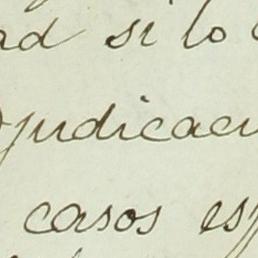 ad si lo
judicaci
casos es